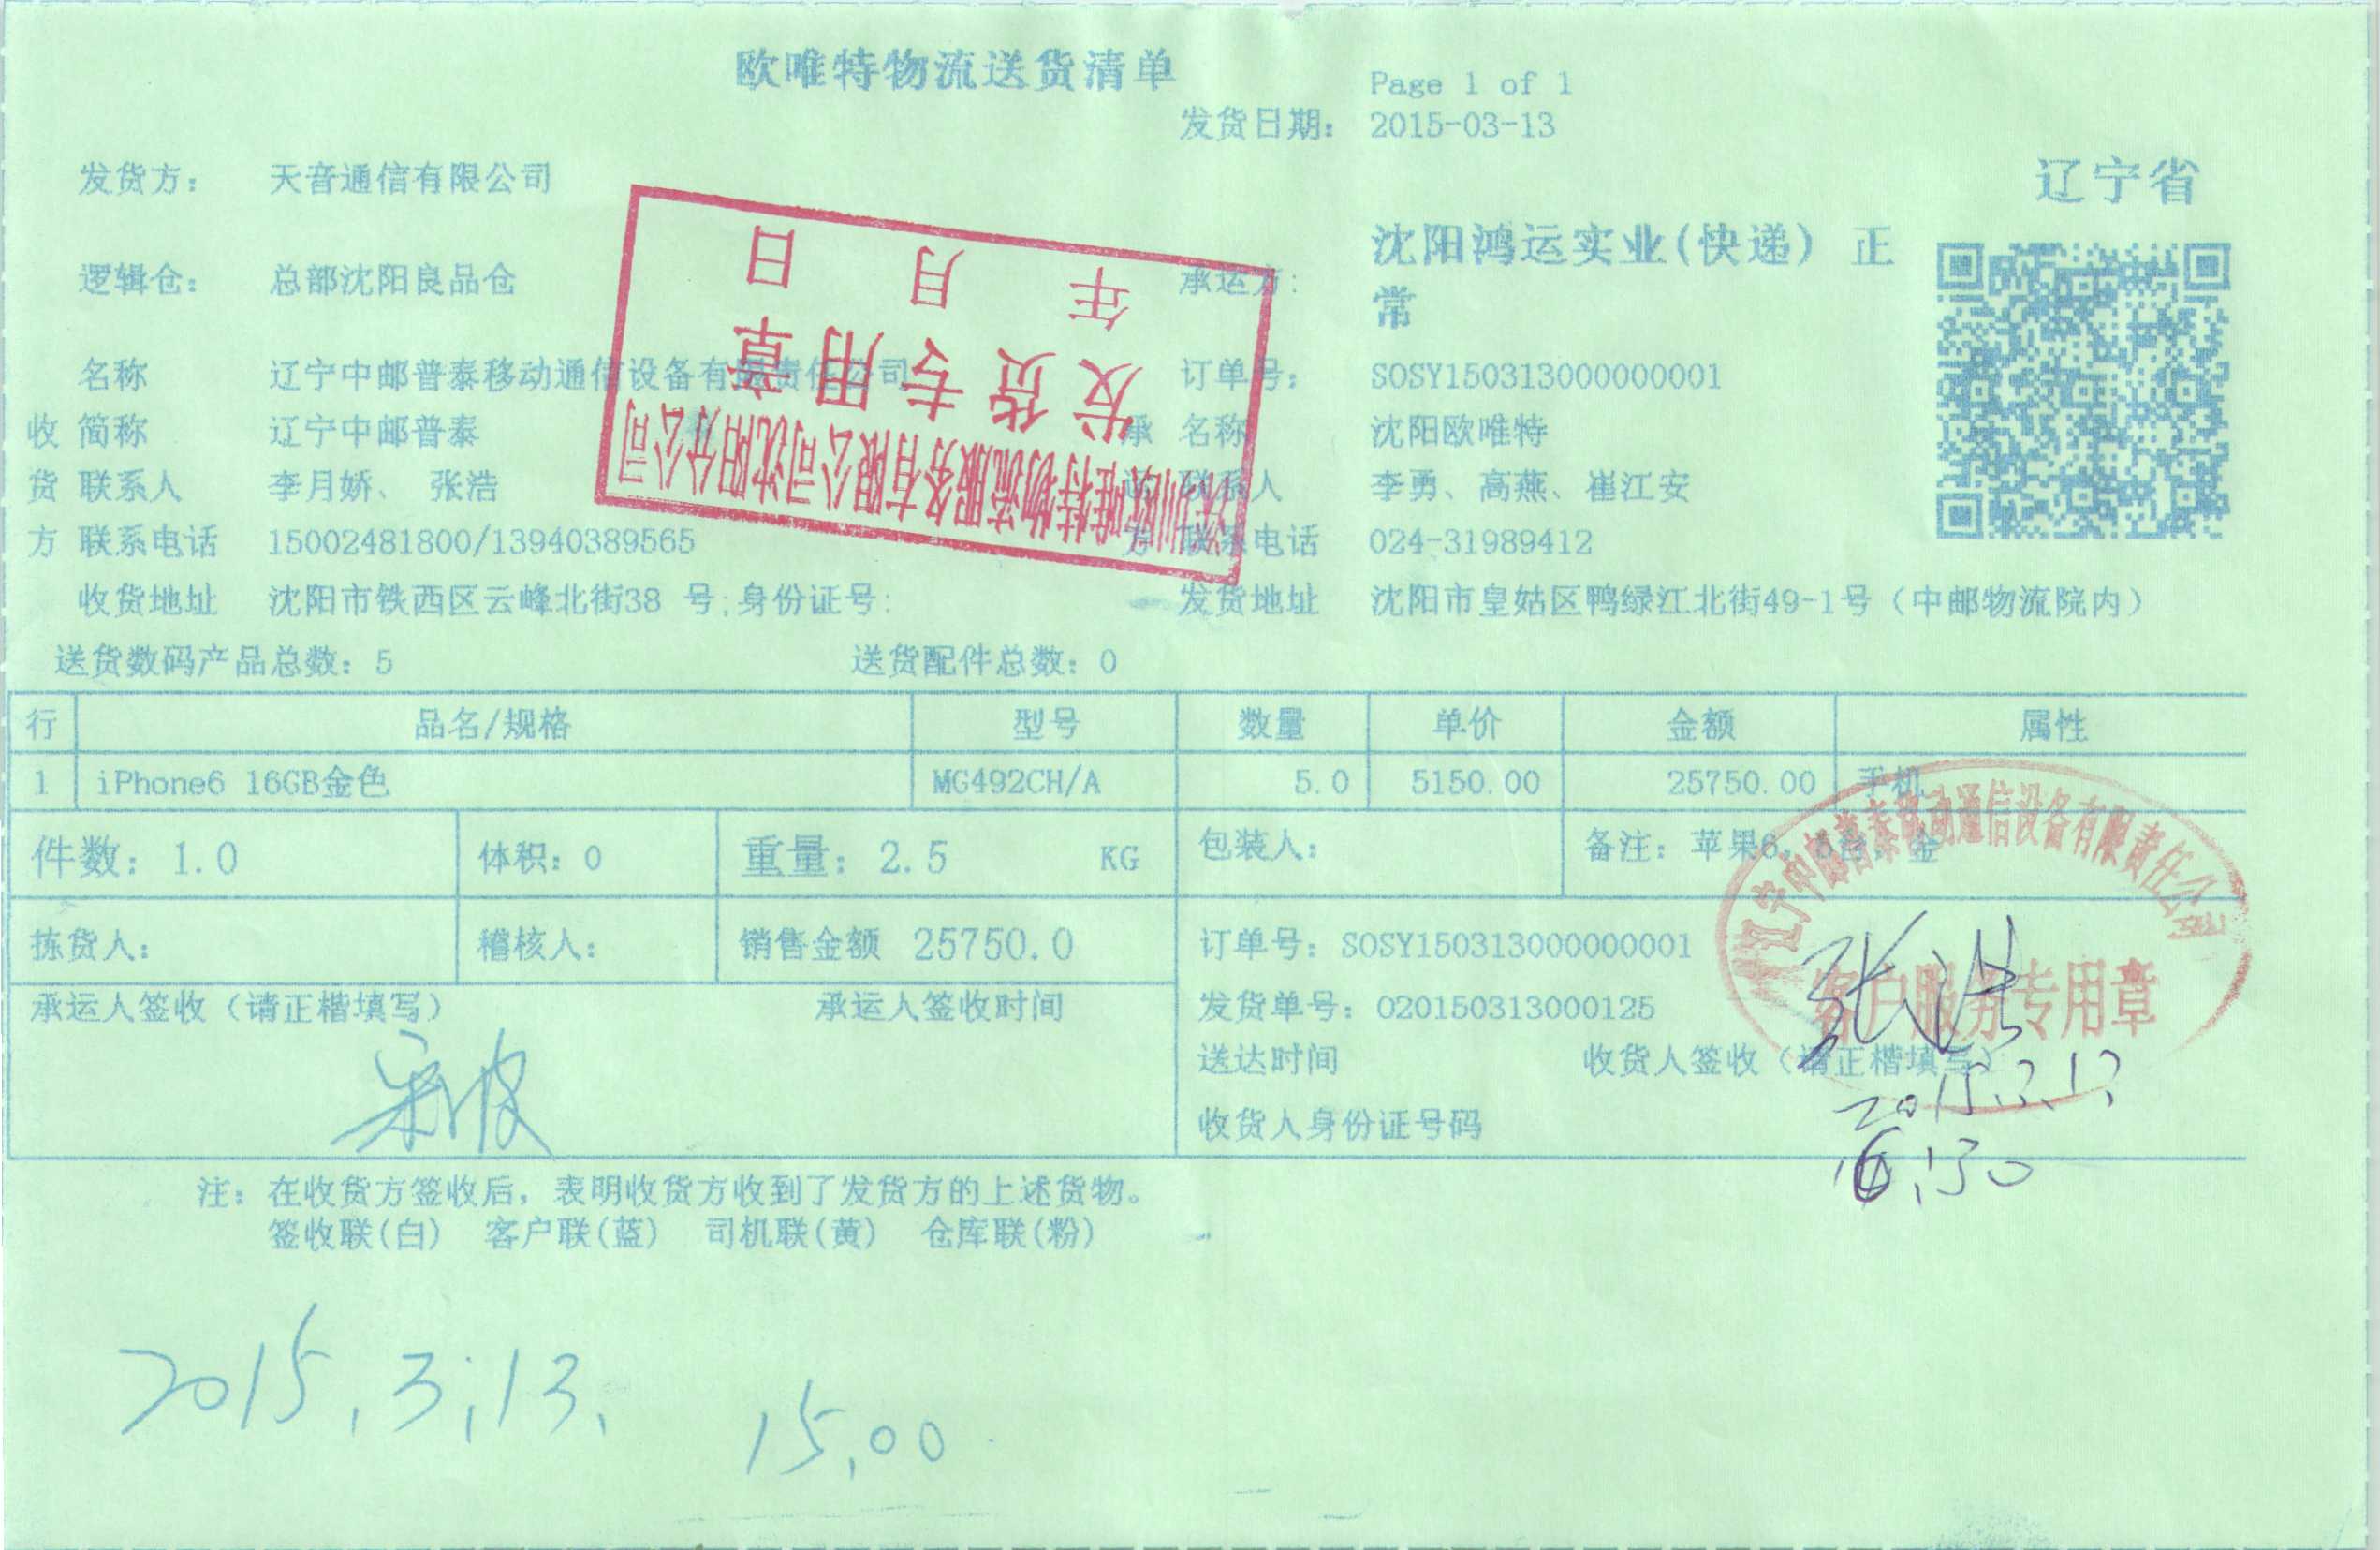 欧唯特物流送货清单
Page 1 of 1
发货日期: 2015-03-13
发货方: 天音通信有限公司
辽宁省
逻辑仓: 总部沈阳良品仓
承运方: 沈阳鸿运实业(快递) 正
常
名称 辽宁中邮普泰移动通信设备有限责任公司 订单号: SOSY150313000000001
收 简称 辽宁中邮普泰 承 名称 沈阳欧唯特
货 联系人 李月娇、 张浩 送 联系人 李勇、高燕、崔江安
方 联系电话 15002481800/13940389565 方 联系电话 024-31989412
收货地址 沈阳市铁西区云峰北街38 号;身份证号: 发货地址 沈阳市皇姑区鸭绿江北街49-1号（中邮物流院内）
深圳欧唯特物流服务有限公司沈阳分公司
发货专用章
年 月 日
送货数码产品总数: 5 送货配件总数: 0
行 品名/规格 型号 数量 单价 金额 属性
1 iPhone6 16GB金色 MG492CH/A 5.0 5150.00 25750.00 手机
件数: 1.0 体积: 0 重量: 2.5 KG 包装人: 备注: 苹果6, 5台, 金
拣货人: 稽核人: 销售金额 25750.0 订单号: SOSY150313000000001
承运人签收（请正楷填写） 承运人签收时间 发货单号: 020150313000125
送达时间 收货人签收（请正楷填写）
收货人身份证号码
辽宁中邮普泰移动通信设备有限责任公司
客户服务专用章
张浩
2015.3.13
16:30
注: 在收货方签收后, 表明收货方收到了发货方的上述货物。
签收联(白) 客户联(蓝) 司机联(黄) 仓库联(粉)
2015.3.13.
15.00